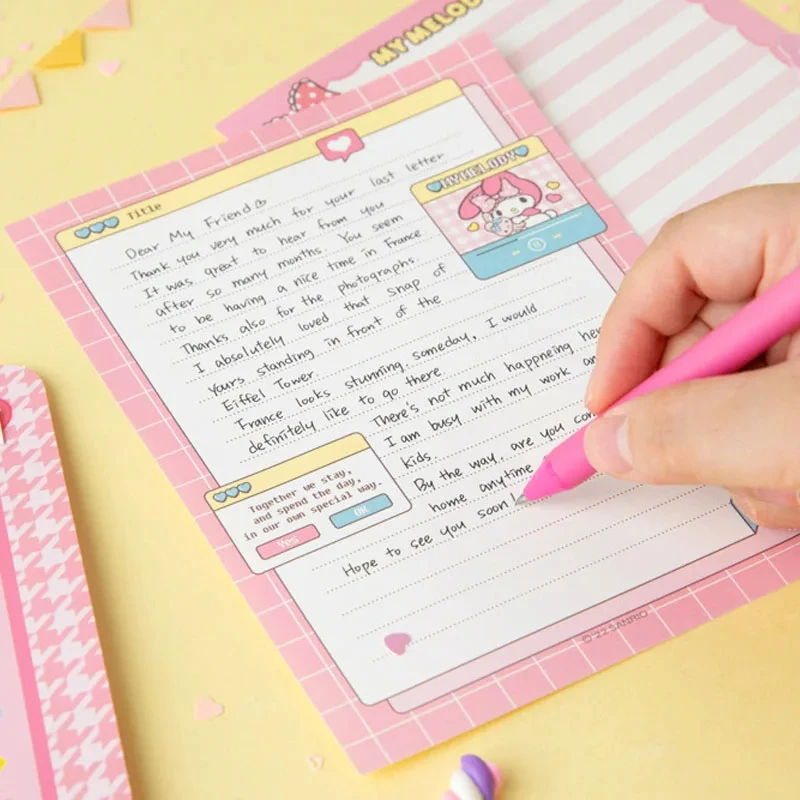 MY MELODY
Title
MY MELODY
Dear My Friend
Thank you very much for your last letter
It was great to hear from you
after so many months. You seem
to be having a nice time in France
Thanks also for the photographs.
I absolutely loved that snap of
yours standing in front of the
Eiffel Tower.
France looks stunning. someday, I would
definitely like to go there
There's not much happneing her
I am busy with my work an
kids.
By the way. are you co
home anytime
Hope to see you soon!
Together we stay,
and spend the day,
in our own special way.
Yes
OK
© '22 SANRIO